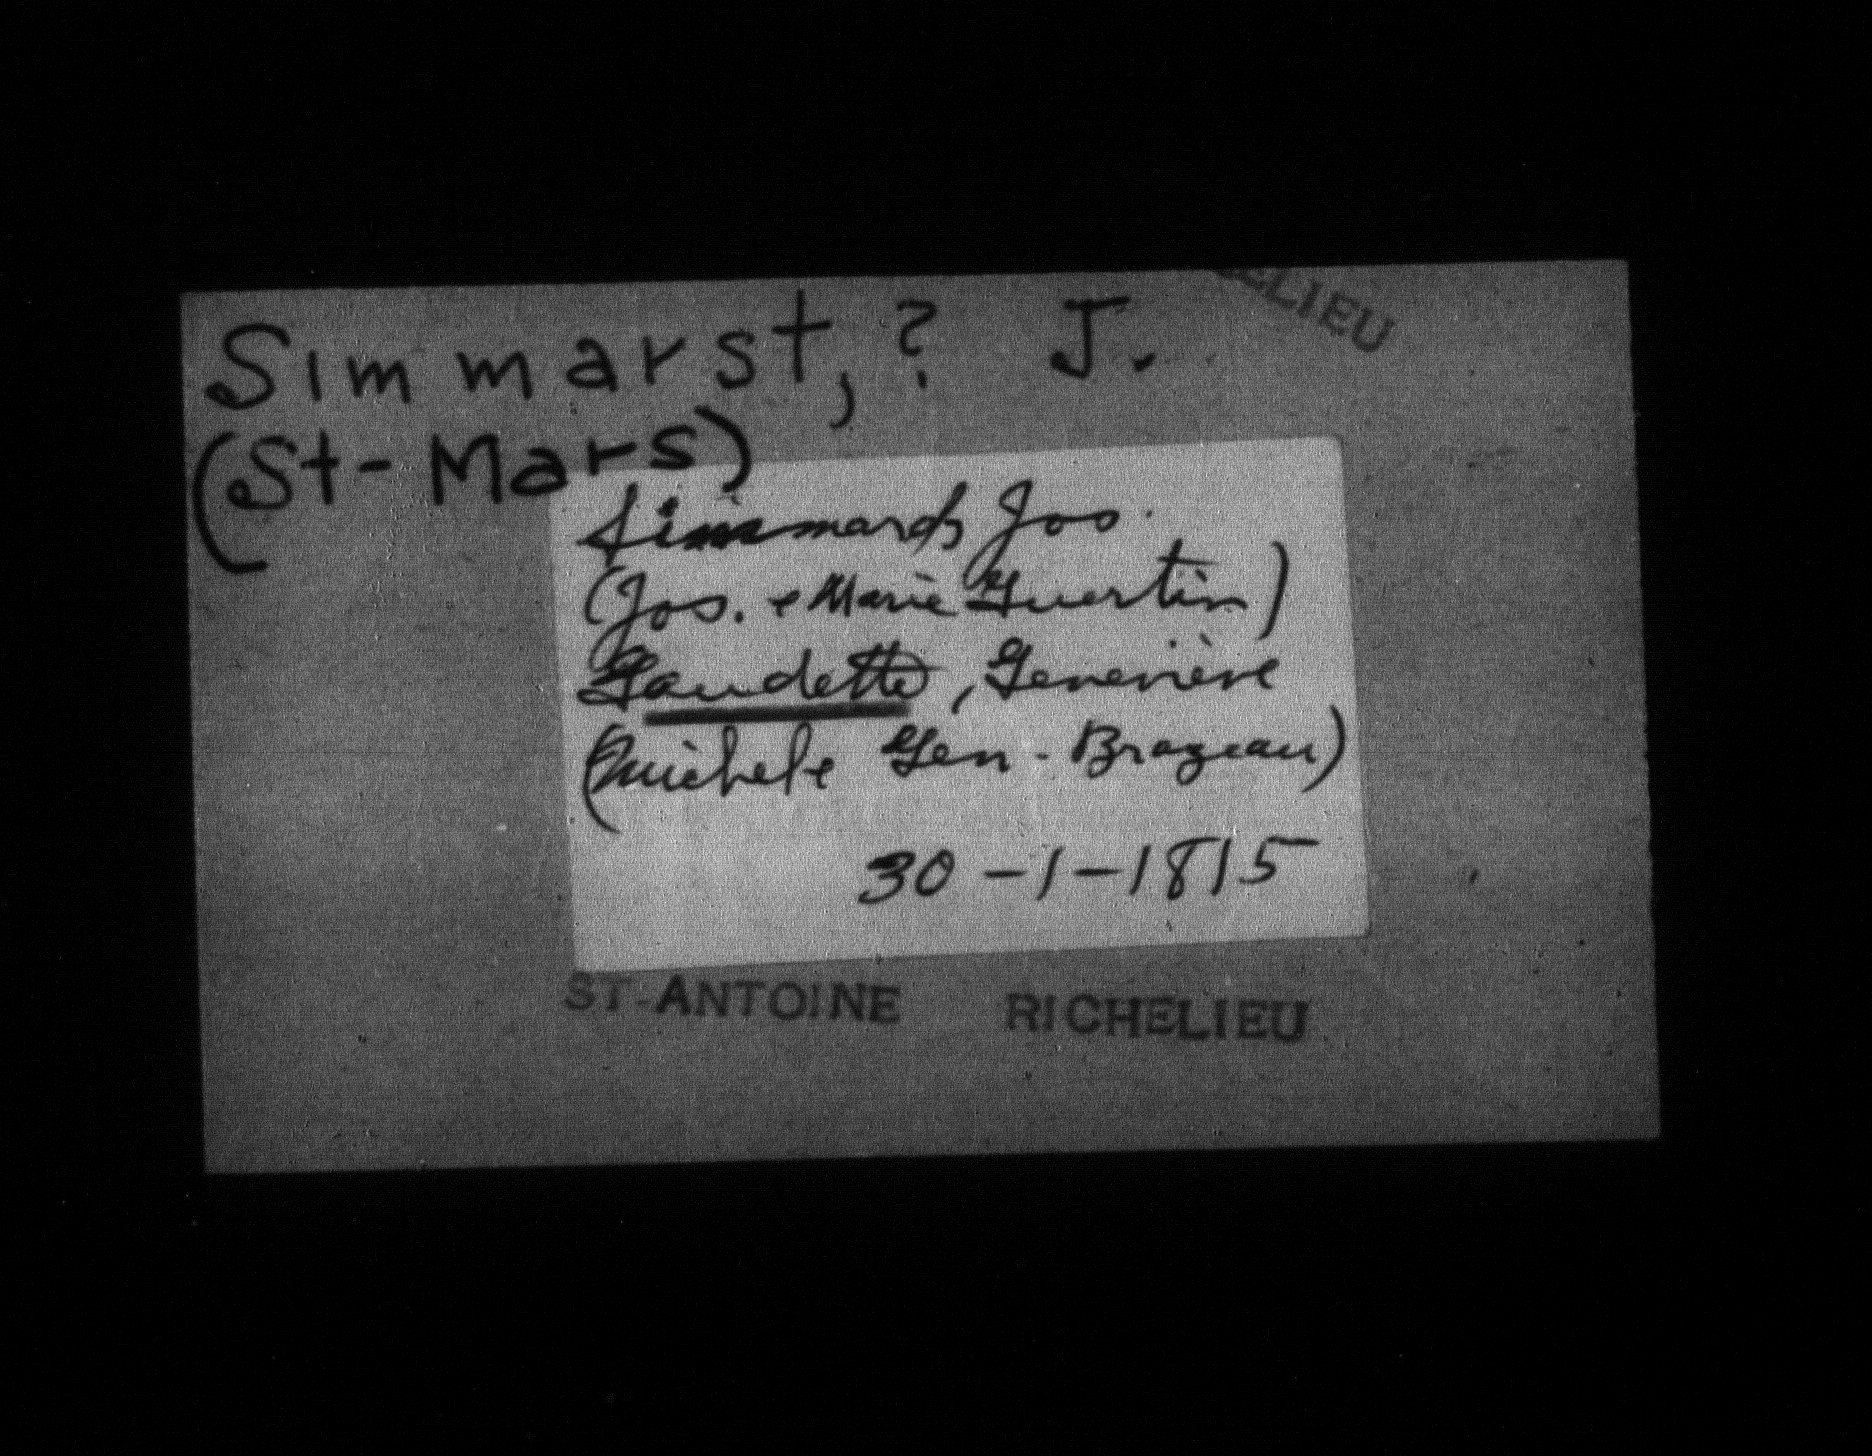 Simmarst, ? J.
ELIEU
(St-Mars)
Simmards Jos.
(Jos. & Marie Guertin)
Gaudette, Geneviève
(Michel & Gen. Brazeau)
30-1-1815
ST-ANTOINE RICHELIEU